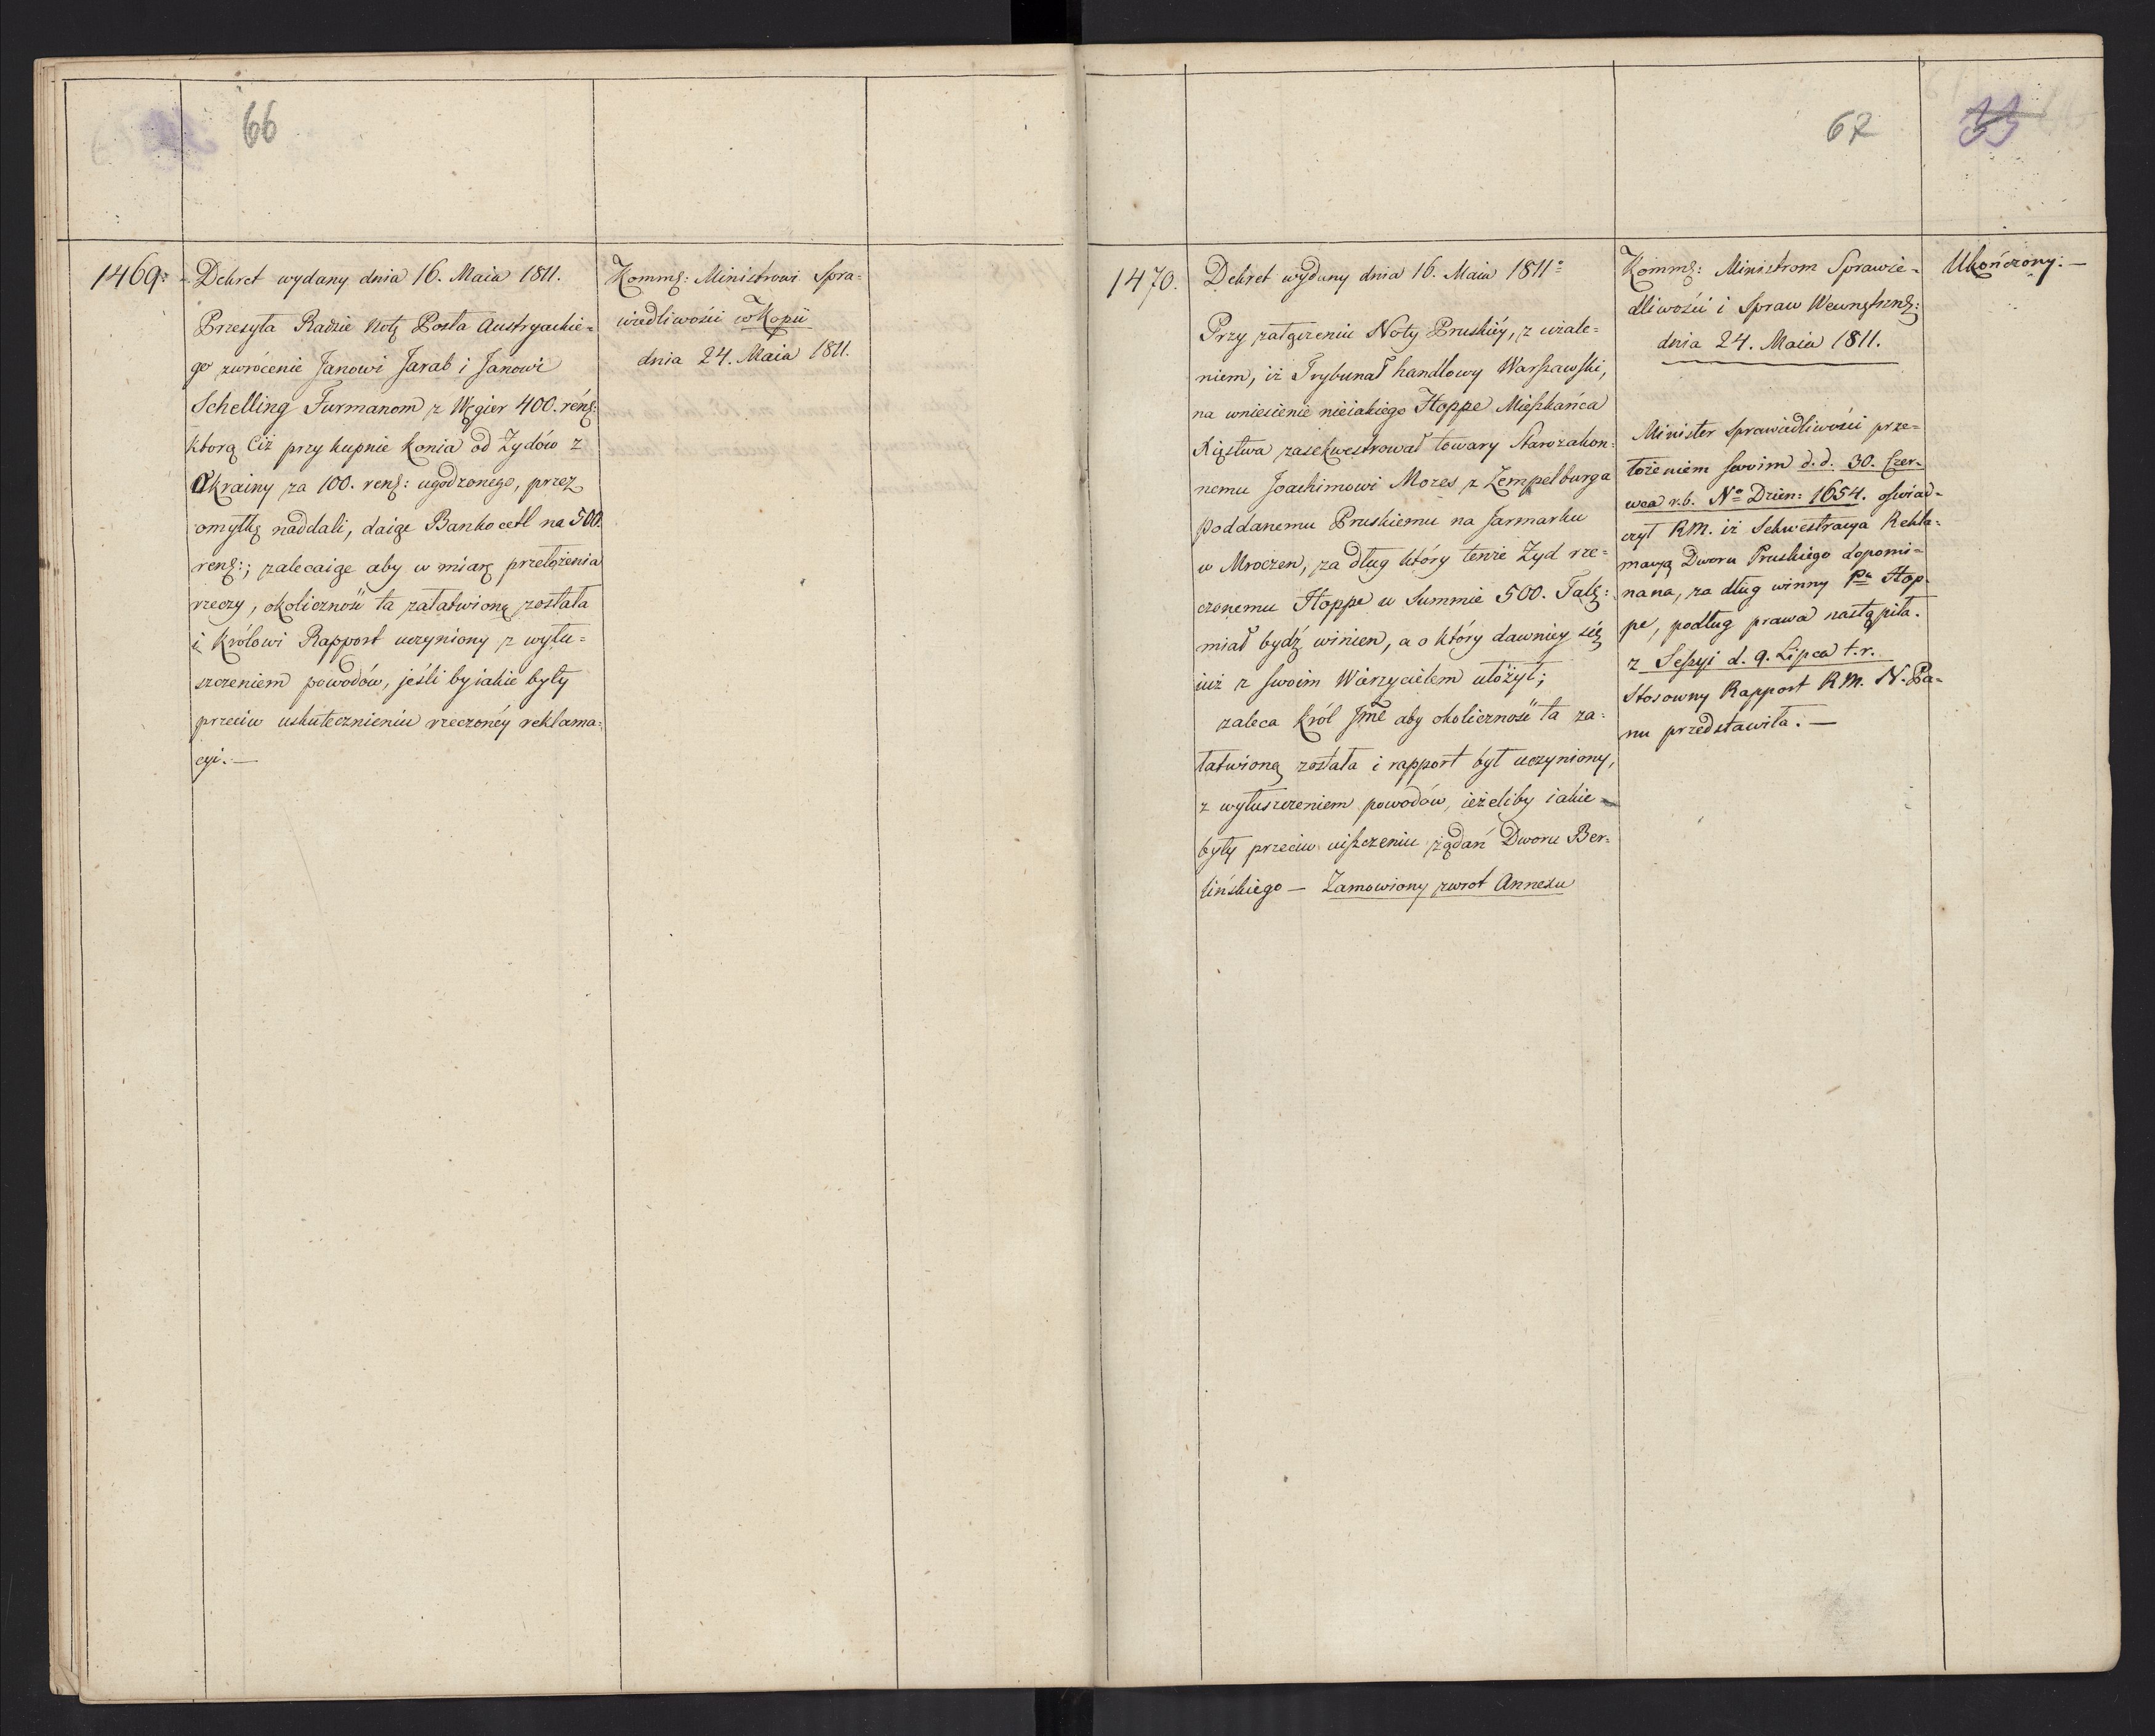 66
1469.
Dekret wydany dnia 16. Maia 1811.
Przesyła Radzie Notę Posła Austryackie-
go zwrócenie Janowi Jarab i Janowi
Schelling Furmanom z Węgier 400. rénß:
którą Ciż przy kupnie konia od Żydów z
Ukrainy za 100. renß: ugodzonego, przez
omyłkę naddali, daiąc Banko cetl na 500.
renß:; zalecaiąc aby w miarę przełożenia
rzeczy, okoliczność ta załatwioną została
i Królowi Rapport uczyniony z wyłu-
szczeniem powodów, jeśli by iakie były
przeciw uskutecznieniu rzeczonéy reklama-
cyi. —
Kommß: Ministrowi Spra-
wiedliwości w Kopii
dnia 24. Maia 1811.
67
33
1470.
Dekret wydany dnia 16. Maia 1811
Przy załączeniu Noty Pruskiéy, z użale-
niem, iż Trybunał handlowy Warszawski,
na wniesienie nieiakiego Hoppe Mieszkańca
Xięstwa zasekwestrował towary Starozakon-
nemu Joachimowi Mozes z Zempelburga
Poddanemu Pruskiemu na Jarmarku
w Mroczen, za dług który tenże Żyd rze-
czonemu Hoppe w Summie 500. Talß:
miał bydź winien, a o który dawniey się
iuż z swoim Wierzycielem ułożył;
zaleca Król Jmć aby okoliczność ta za-
łatwioną została i rapport był uczyniony,
z wyłuszczeniem powodów, ieżeliby iakie
były przeciw uiszczeniu żądań Dworu Ber-
lińskiego — Zamowiony zwrot Annexu
Kommß: Ministrom Sprawie-
dliwości i Spraw Wewnętrznß:
dnia 24. Maia 1811.
Minister Sprawiedliwości prze-
łożeniem swoim d. d. 30. Czer-
wca r.b. No Dzien: 1654. oświad-
czył RM. iż Sekwestracya Rekla-
macyą Dworu Pruskiego dopomi-
nana, za dług winny Pu Hop-
pe, podług prawa nastąpiła.
z Sessyi d. 9. Lipca t.r.
Stosowny Rapport RM. N. Pa-
nu przedstawiła. —
Ukończony. —